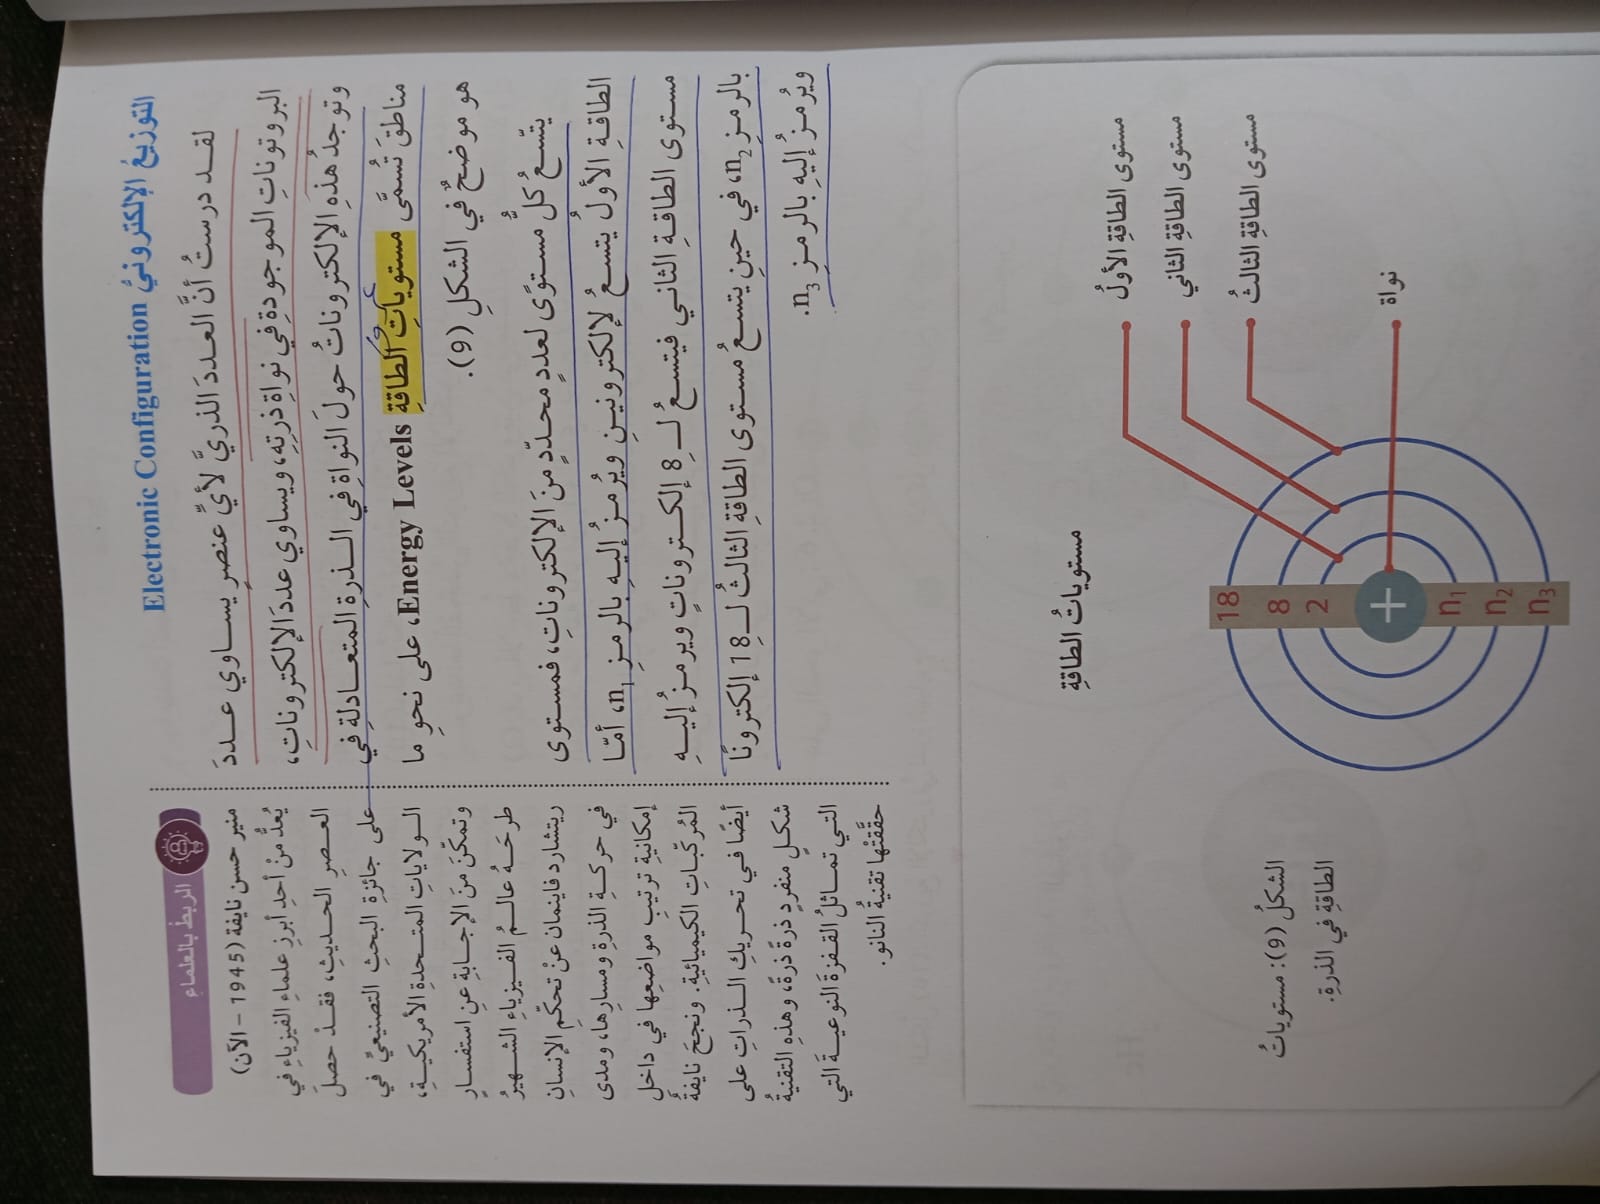 التوزيعُ الإلكترونيُّ Electronic Configuration
لقد درستُ أنَّ العددَ الذريَّ لأيِّ عنصرٍ يساوي عددَ
البروتوناتِ الموجودةِ في نواةِ ذرتِه، ويساوي عددَ الإلكتروناتِ،
وتوجدُ هذهِ الإلكتروناتُ حولَ النواةِ في الذرةِ المتعادلةِ في
مناطقَ تُسمَّى مستوياتِ الطاقةِ Energy Levels، على نحوِ ما
هو موضحٌ في الشكلِ (9).
يتّسعُ كلُّ مستوًى لعددٍ محدّدٍ منَ الإلكتروناتِ، فمستوى
الطاقةِ الأولُ يتسعُ لإلكترونينِ ويُرمزُ إليهِ بالرمزِ n1، أمّا
مستوى الطاقةِ الثاني فيتسعُ لـِ 8 إلكتروناتٍ ويرمزُ إليهِ
بالرمزِ n2، في حينِ يتسعُ مستوى الطاقةِ الثالثُ لـِ 18 إلكترونًا
ويُرمزُ إليهِ بالرمزِ n3.
الربطُ بالعلماءِ
منير حسن نايفة (1945 – الآن)
يُعدُّ منْ أحدِ أبرزِ علماءِ الفيزياءِ في
العصرِ الحديثِ، فقدْ حصلَ
على جائزةِ البحثِ التصنيعيِّ في
الولاياتِ المتحدةِ الأمريكيةِ،
وتمكّنَ منَ الإجابةِ عنِ استفسارٍ
طرحَهُ عالمُ الفيزياءِ الشهيرُ
ريتشارد فاينمان عنْ تحكّمِ الإنسانِ
في حركةِ الذرةِ ومسارِها، ومدى
إمكانيةِ ترتيبِ مواضعِها في داخلِ
المُركّباتِ الكيميائيةِ. ونجحَ نايفةُ
أيضًا في تحريكِ الذراتِ على
شكلٍ منفردٍ ذرةً ذرةً، وهذهِ التقنيةُ
التي تماثلُ القفزةَ النوعيةَ التي
حقّقتْها تقنيةُ النانو.
مستوياتُ الطاقةِ
مستوى الطاقةِ الأولُ
مستوى الطاقةِ الثاني
مستوى الطاقةِ الثالثُ
نواة
18
8
2
+
n1
n2
n3
الشكلُ (9): مستوياتُ
الطاقةِ في الذرةِ.